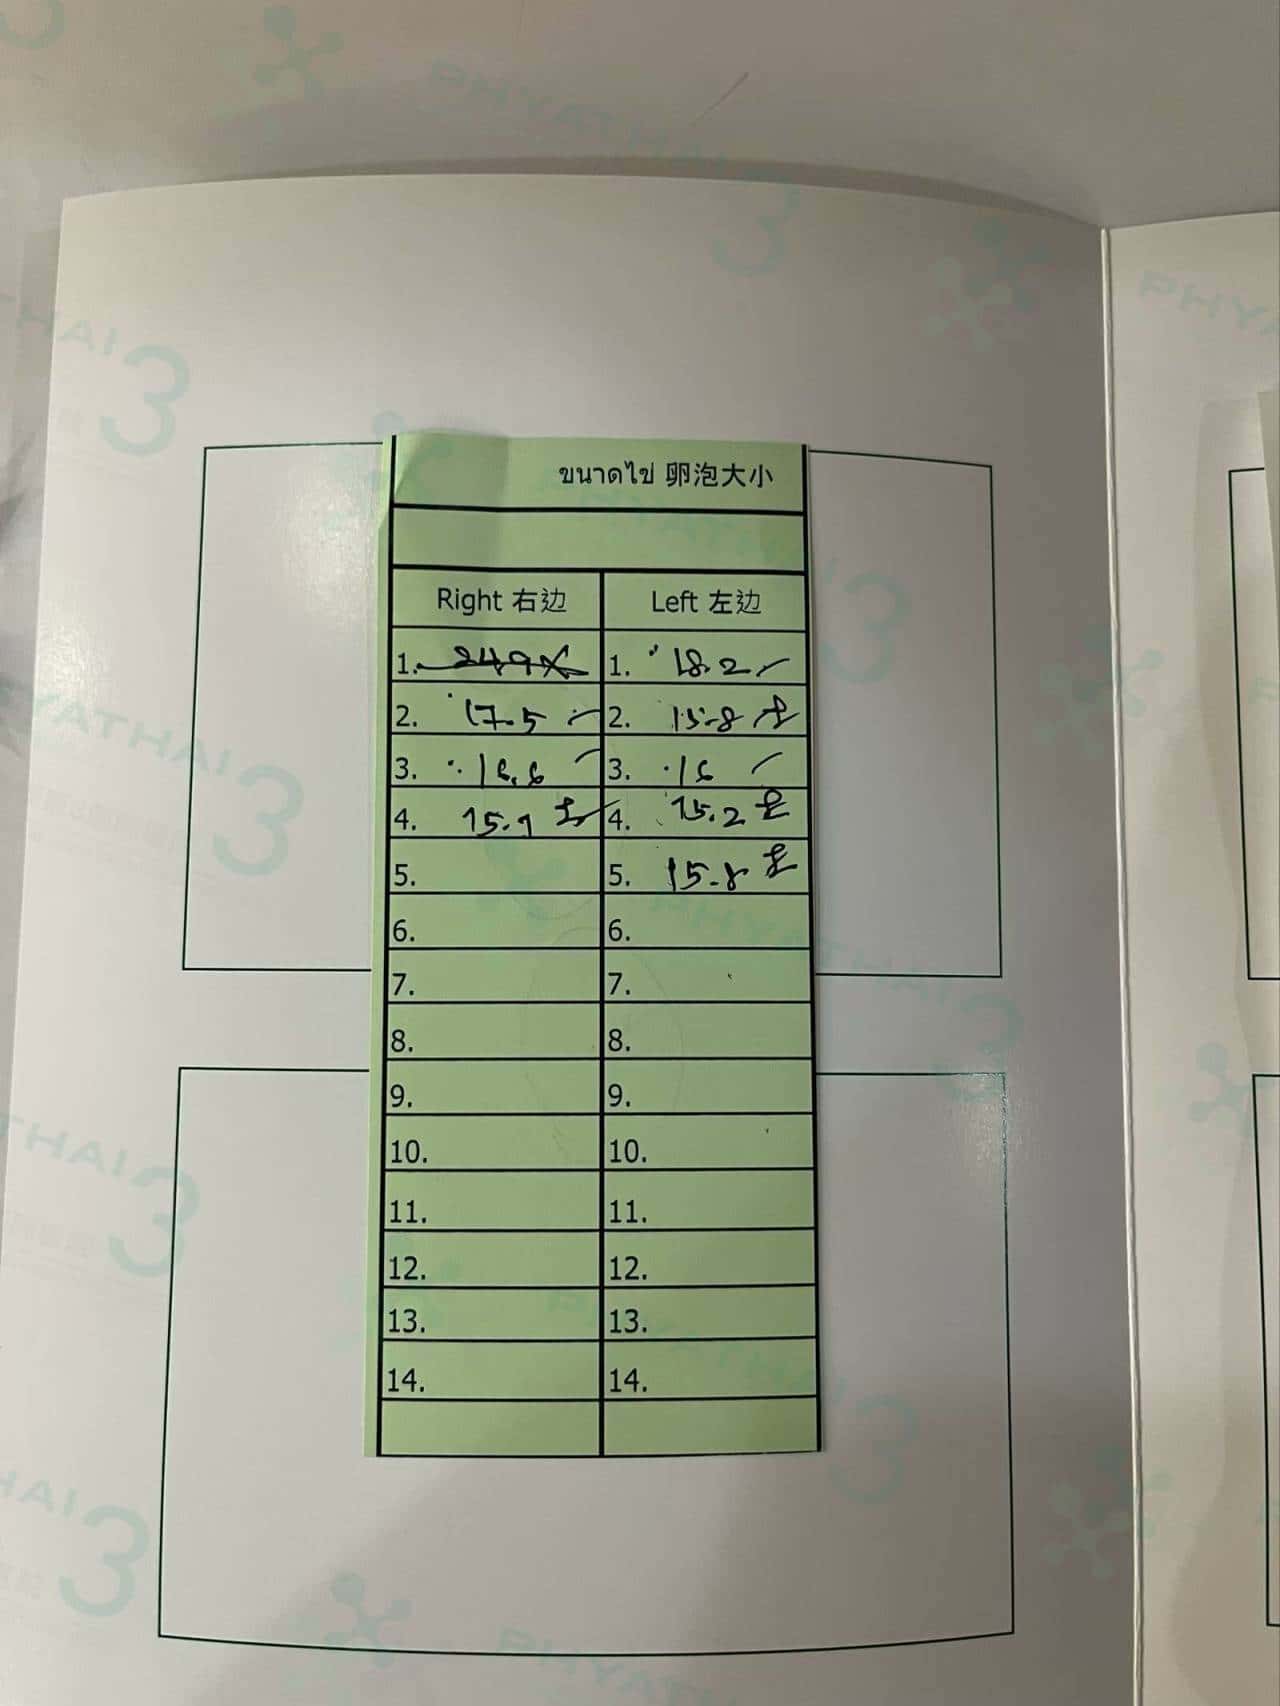 ขนาดไข่ 卵泡大小
Right 右边 Left 左边
1. 24.9 1. 18.2
2. 17.5 2. 15.8
3. 16.6 3. 16
4. 15.9 4. 15.2
5. 5. 15.8
6. 6.
7. 7.
8. 8.
9. 9.
10. 10.
11. 11.
12. 12.
13. 13.
14. 14.
PHYATHAI 3